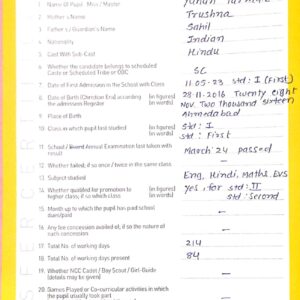 1. Name Of Pupil Miss / Master
2. Mother's Name Trushna
3. Father's / Guardian's Name Sahil
4. Nationality Indian
5. Cast With Sub-Cast Hindu
6. Whether the candidate belongs to scheduled
Caste or Scheduled Tribe or OBC SC
7. Date of First Admission in the School with Class 11-05-23 std: I (First)
8. Date of Birth (Christian Era) according (in figures) 28-11-2016 Twenty eight
the admission Register (in words) Nov. Two thousand sixteen
9. Place of Birth Ahmedabad
10. Class in which pupil last studied (in figures) std: I
(in words) std: First
11. School / Board Annual Examination last taken with
result March' 24 passed
12. Whether failed, if so once / twice in the same class —
13. Subject studied Eng, Hindi, Maths, EVS
14. Whether qualified for promotion to (in figures) Yes, for std: II
higher class, if so which class (in words) std: Second
15. Month up to which the pupil has paid school
dues/paid —
16. Any fee concession availed of, if so the nature of
such concession —
17. Total No. of working days 214
18. Total No. of working days 84
19. Whether NCC Cadet / Boy Scout / Girl-Guide
(details may be given) —
20. Games Played or Co-curricular activities in which
the pupil usually took part